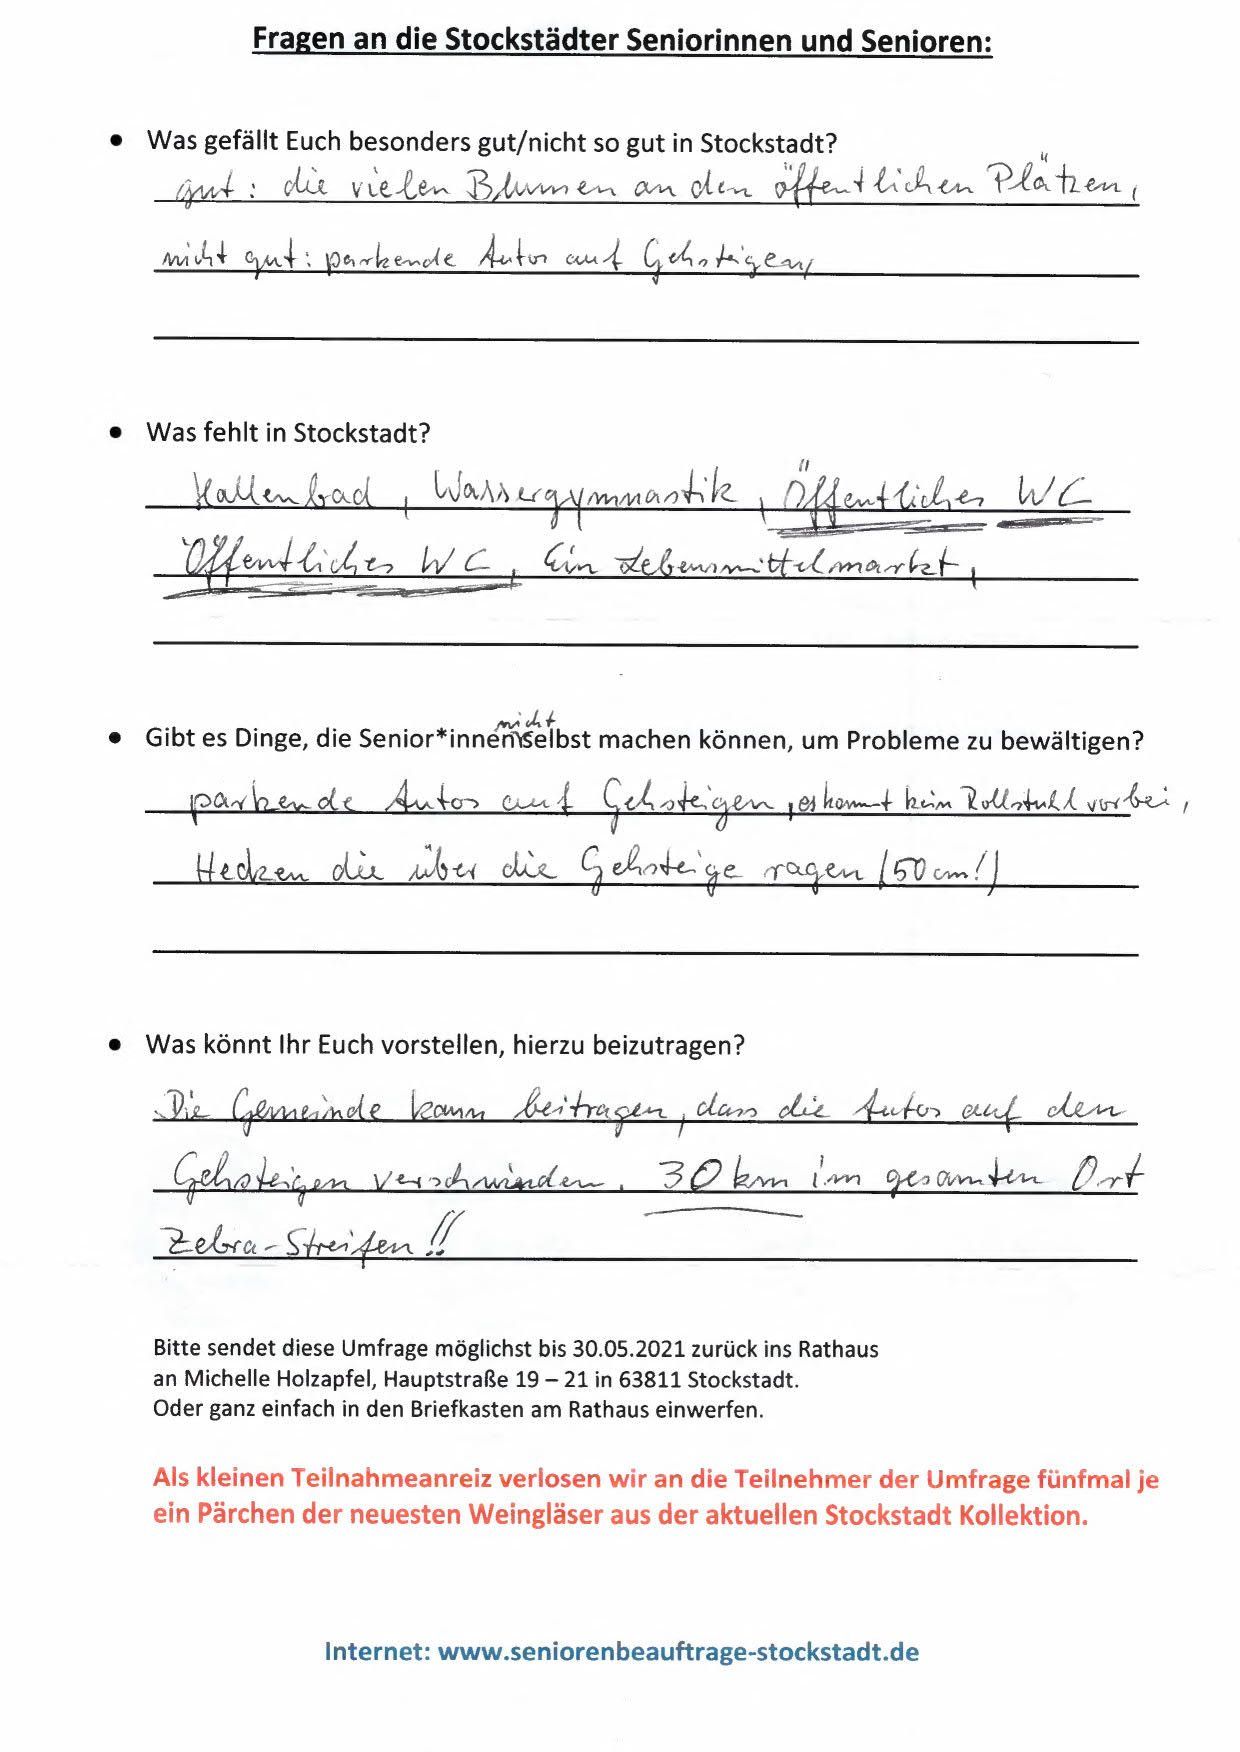 Fragen an die Stockstädter Seniorinnen und Senioren:
• Was gefällt Euch besonders gut/nicht so gut in Stockstadt?
gut: die vielen Blumen an den öffentlichen Plätzen,
nicht gut: parkende Autos auf Gehsteigen,
• Was fehlt in Stockstadt?
Hallenbad, Wassergymnastik, Öffentliches WC
Öffentliches WC, Ein Lebensmittelmarkt,
nicht
• Gibt es Dinge, die Senior*innen selbst machen können, um Probleme zu bewältigen?
parkende Autos auf Gehsteigen, es kommt kein Rollstuhl vorbei,
Hecken die über die Gehsteige ragen (50 cm!)
• Was könnt Ihr Euch vorstellen, hierzu beizutragen?
Die Gemeinde kann beitragen, dass die Autos auf den
Gehsteigen verschwinden. 30 km im gesamten Ort
Zebra-Streifen!!
Bitte sendet diese Umfrage möglichst bis 30.05.2021 zurück ins Rathaus
an Michelle Holzapfel, Hauptstraße 19 – 21 in 63811 Stockstadt.
Oder ganz einfach in den Briefkasten am Rathaus einwerfen.
Als kleinen Teilnahmeanreiz verlosen wir an die Teilnehmer der Umfrage fünfmal je
ein Pärchen der neuesten Weingläser aus der aktuellen Stockstadt Kollektion.
Internet: www.seniorenbeauftrage-stockstadt.de